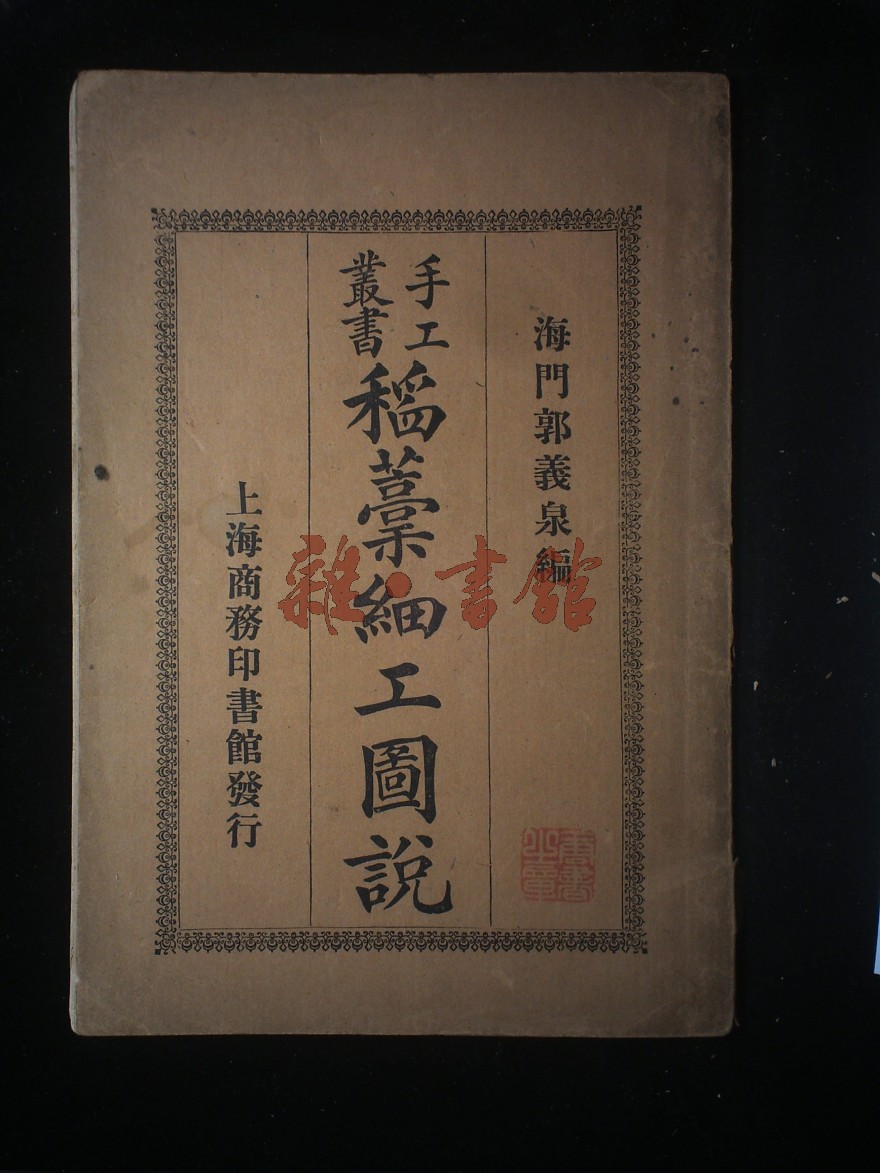 海門郭義泉編
手工
叢書
稻藁細工圖說
上海商務印書館發行
雜·書館